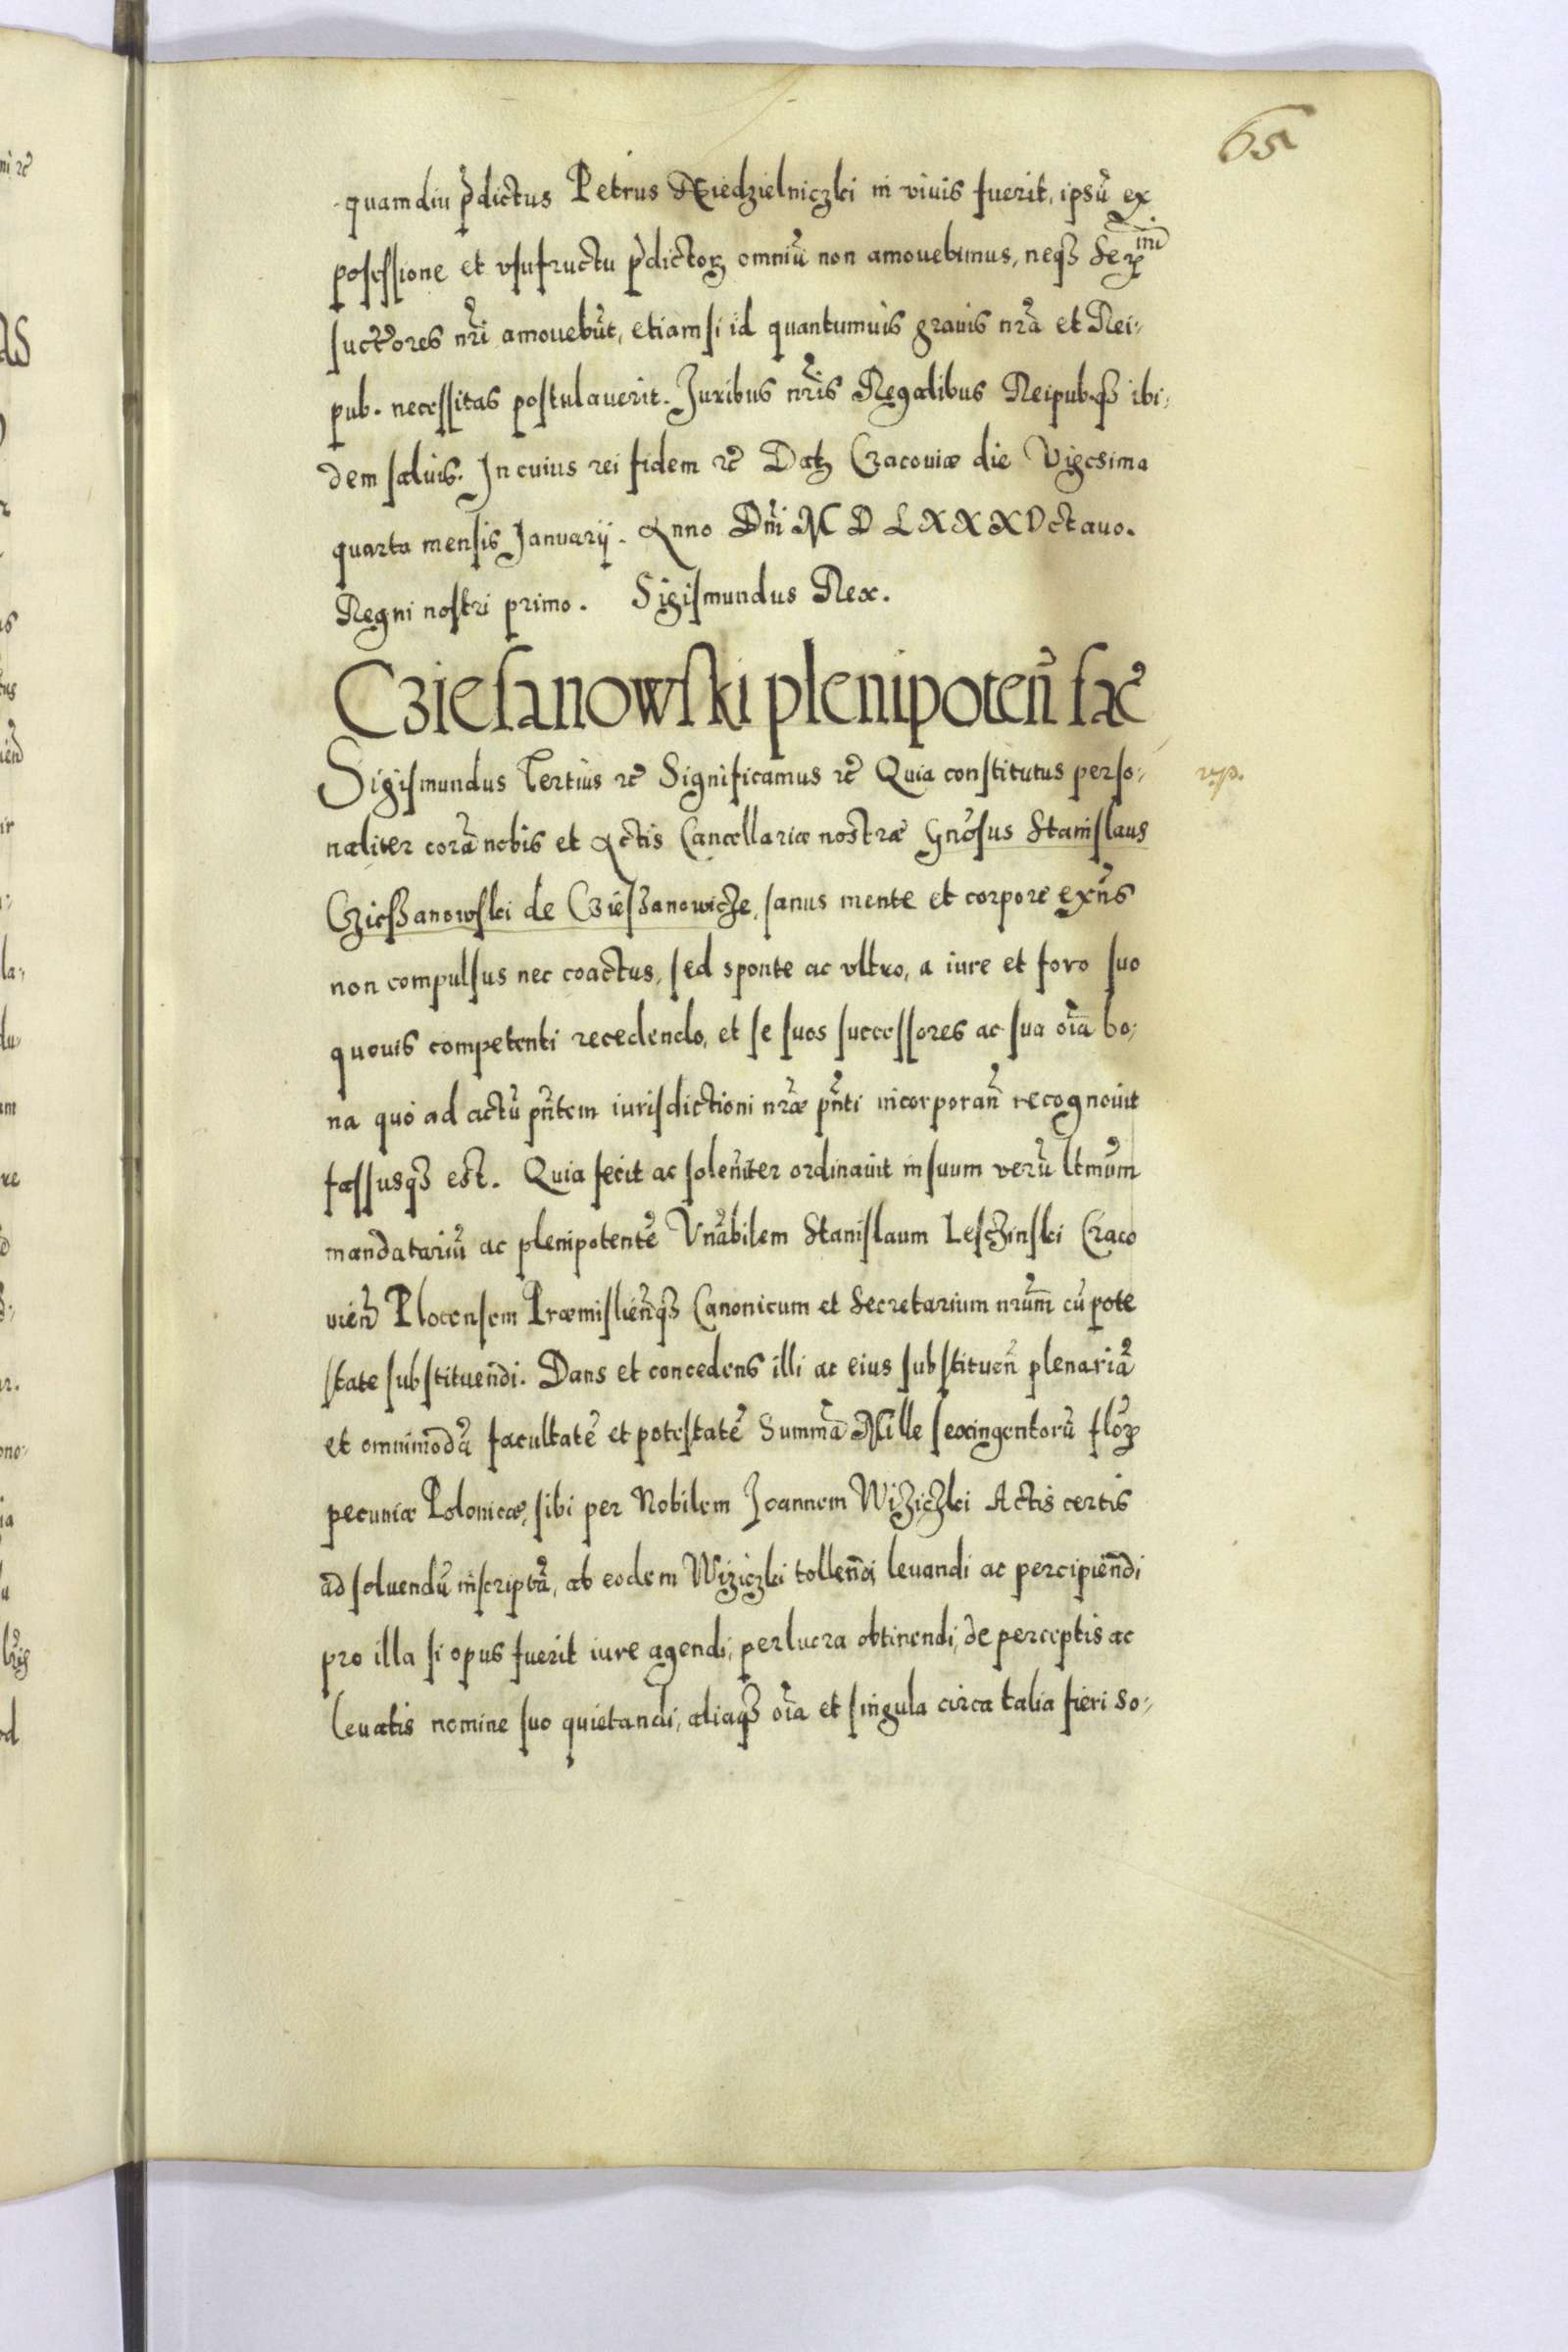 65
quamdiu p̄dictus Petrus Niedzielniczki in viuis fuerit, ipsū ex
posessione et vsufructu p̄dictoꝝ omniū non amouebimus, neqȝ Seꝝ^mi
suctores nr̄i amouebūt, etiamsi id quantumuis grauis nr̄a et Rei-
pub. necessitas postulauerit. Juribus nr̄is Regalibus Reipubqȝ ibi-
dem saluis. In cuius rei fidem ꝛc̄ Datꝫ Cracouiæ die Vigesima
quarta mensis Januarij. Anno Dn̄i M D L X X X Octauo.
Regni nostri primo. Sigismundus Rex.
Cziesanowski plenipoten̄ fac̄
Sigismundus Tertius ꝛc̄ Significamus ꝛc̄ Quia constitutus perso-
naliter corā nobis et Actis Cancellariæ nostræ Gnōsus Stanislaus
Czieszanowski de Czieszanowicze, sanus mente et corpore exn̄s
non compulsus nec coactus, sed sponte ac vltro, a iure et foro suo
quouis competenti recedendo, et se suos successores ac sua oīa bo-
na quo ad actū pn̄tem iurisdictioni nr̄æ pn̄ti incorporan̄ recognouit
fassusqȝ est. Quia fecit ac solen̄iter ordinauit in suum verū ltm̄um
mandatariū ac plenipotentē Vnābilem Stanislaum Leszczinski Craco
uien̄ Plocensem Præmislien̄qȝ Canonicum et Secretarium nr̄um cū pote
state substituendi. Dans et concedens illi ac eius substituen̄ plenariā
et omnimodā facultatē et potestatē Summā Mille sexingentorū floꝝ
pecuniæ Polonicæ, sibi per Nobilem Joannem Wiziczki Actis certis
ad soluendū inscriptā, ab eodem Wiziczki tollendi, leuandi ac percipiendi
pro illa si opus fuerit iure agendi, perlucra obtinendi, de perceptis ac
leuatis nomine suo quietandi, aliaqȝ oīa et singula circa talia fieri so-